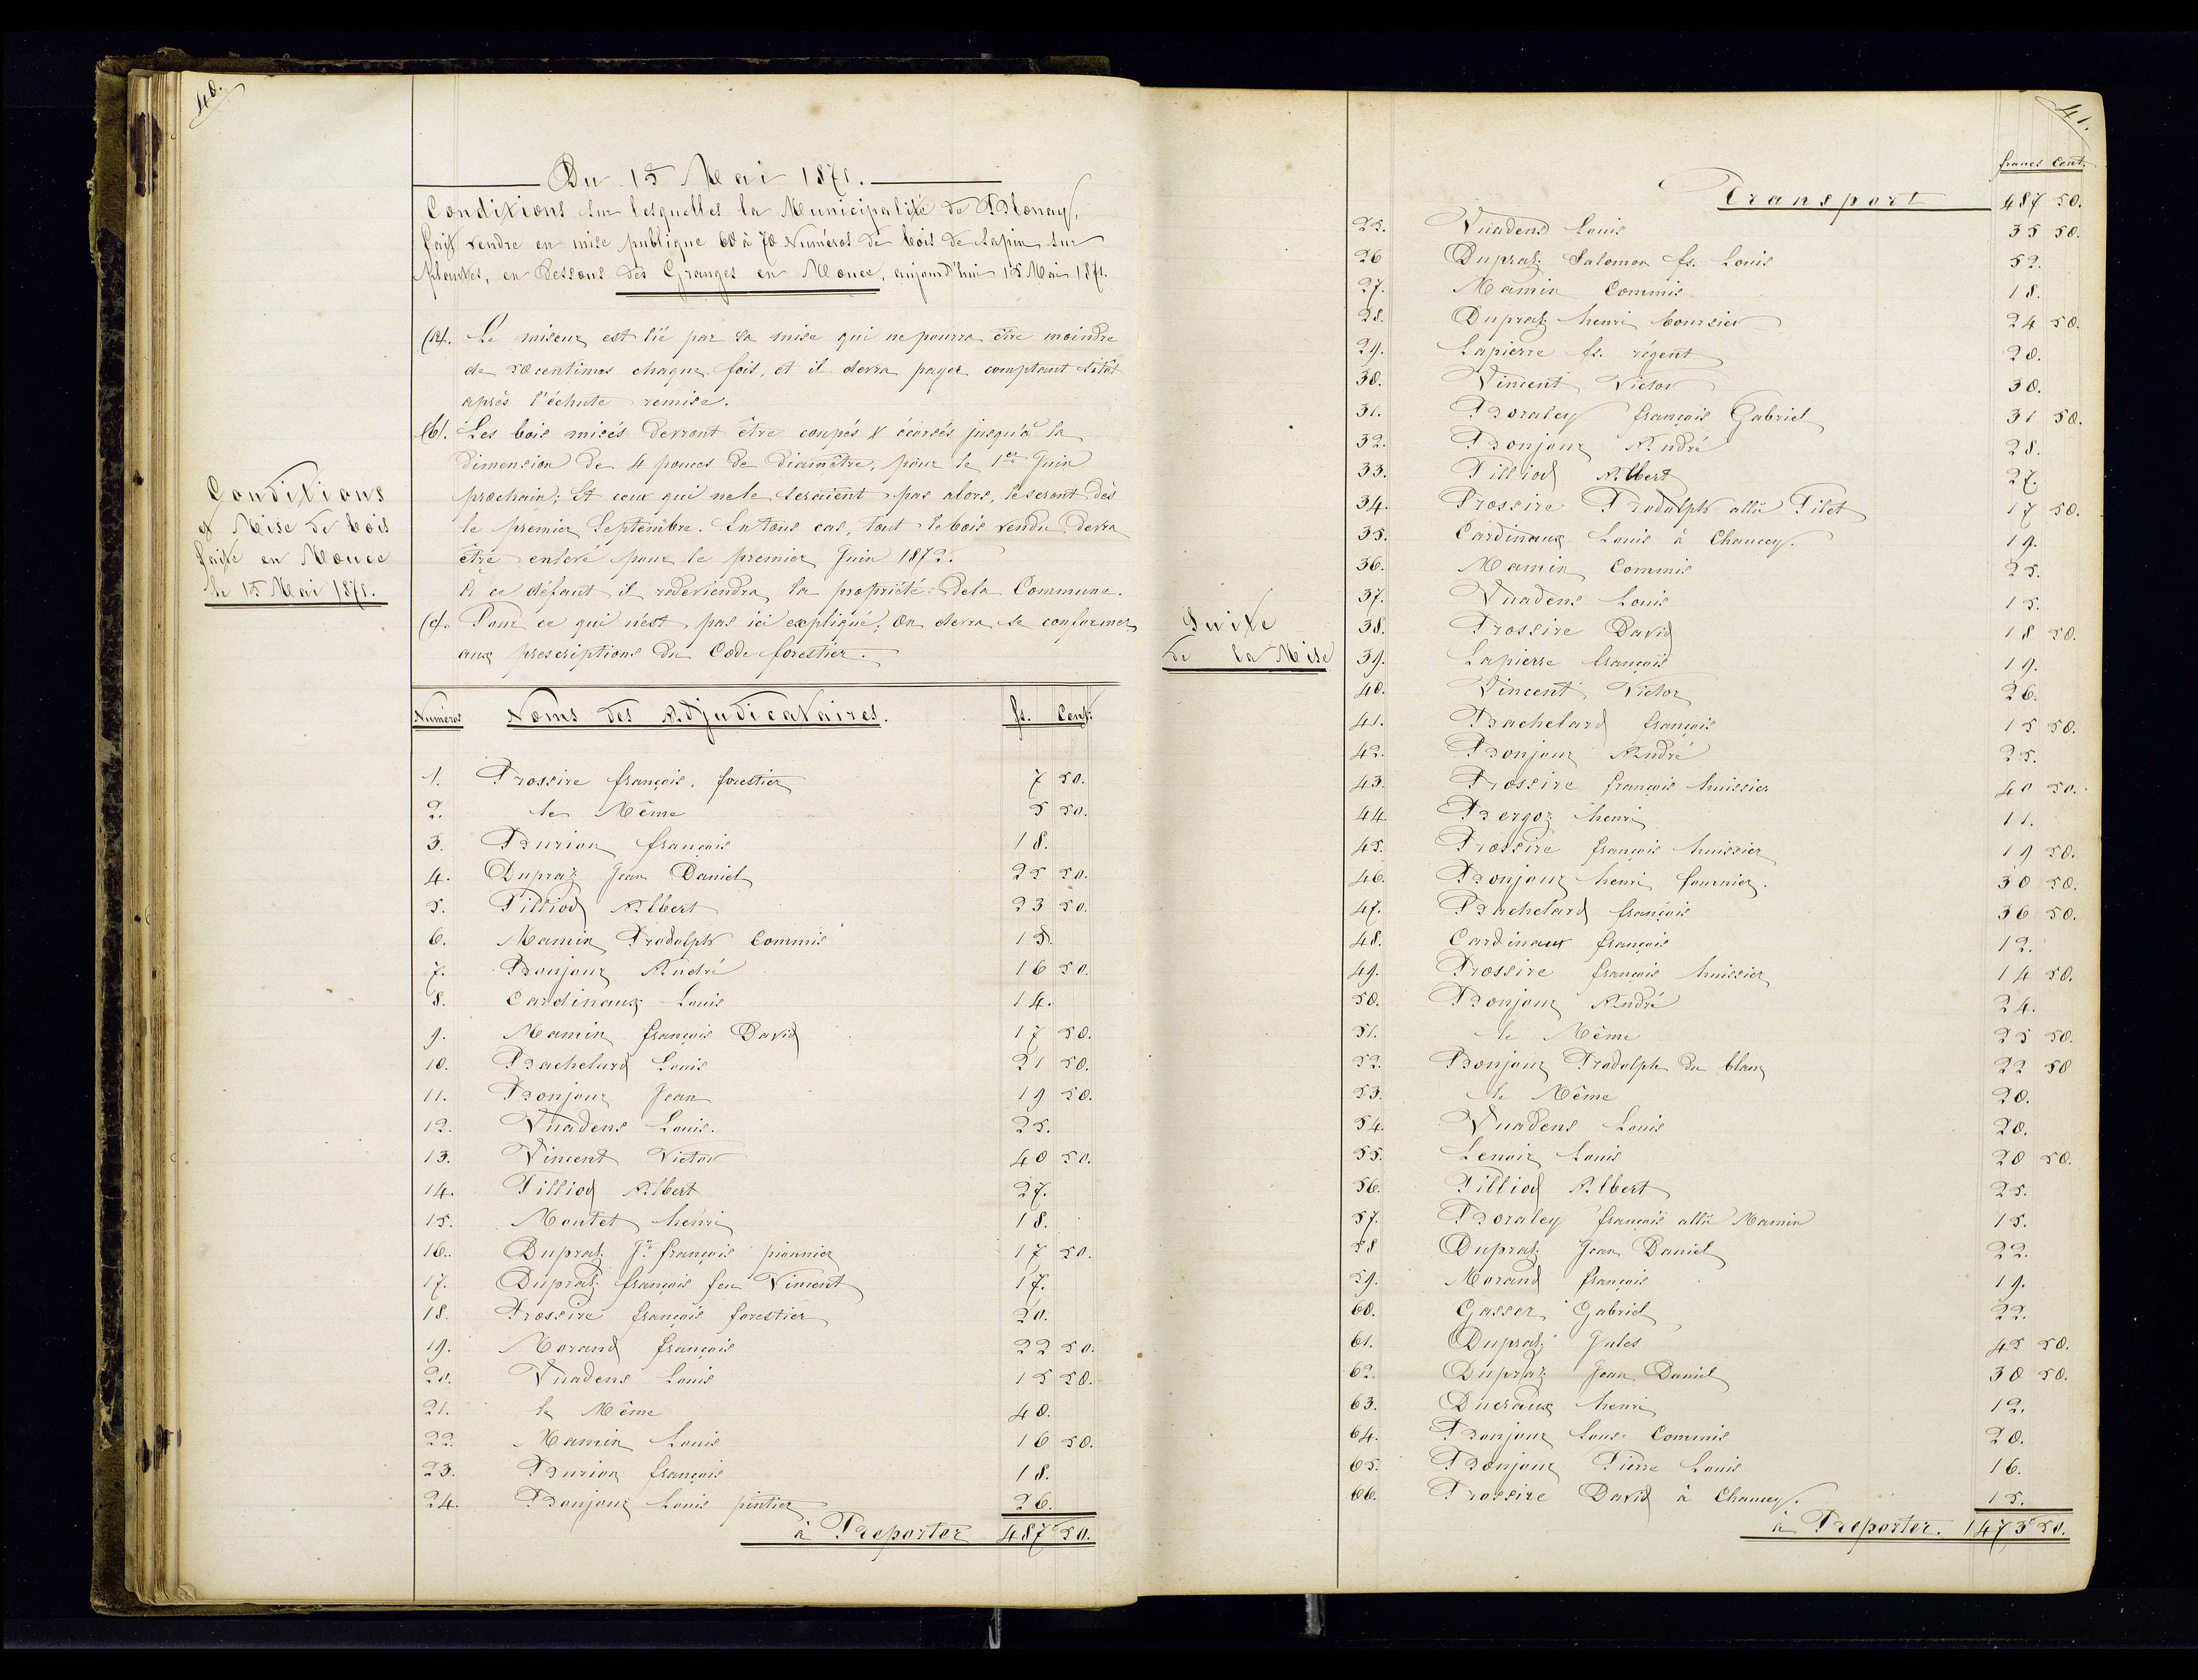 40.
Du 15 Mai 1871.
Conditions sur lesquelles la Municipalité de Blonay,
fait vendre en mise publique 60 à 70 Numéros de bois de sapin sur
plantes, en Dessous des Granges en Mouce, aujourd'hui 15 Mai 1871.
(a). Le miseur est lié par sa mise qui ne pourra être moindre
de 50 centimes chaque fois, et il devra payer comptant sitôt
après l'échute remise.
(b). Les bois misés devront être coupés & écorsés jusqu'à la
dimension de 4 pouces de diamêtre, pour le 1er Juin
prochain; Et ceux qui ne le seraient pas alors, le seront dès
le premier Septembre. En tous cas, tout le bois vendu devra
être enlevé pour le premier Juin 1872.
A ce défaut il redeviendra la propriété de la Commune.
(c). Pour ce qui n'est pas ici expliqué, on devra se conformer
aux prescriptions du Code forestier.
Conditions
et Mise de bois
faite en Mouce
le 15 Mai 1871.
Numéros Noms des Adjudicataires. fr. Cent.
1. Rossire françois, forestier 7 50.
2. le Même 5 50.
3. Burion françois 18.
4. Dupraz Jean Daniel 25 50.
5. Pilliod Albert 23 50.
6. Mamin Rodolph Commis 15.
7. Bonjour André 16 50.
8. Cardinaux Louis 14.
9. Mamin françois David 17 50.
10. Bachelard Louis 21 50.
11. Bonjour Jean 19 50.
12. Vuadens Louis. 25.
13. Vincent Victor 40 50.
14. Pilliod Albert 27.
15. Montet henri 18.
16. Dupraz Jn françois pionnier 17 50.
17. Dupraz françois feu Vincent 17.
18. Rossire françois forestier 20.
19. Morand françois 22 50.
20. Vuadens Louis 15 50.
21. le Même 40.
22. Mamin Louis 16 50.
23. Burion françois 18.
24. Bonjour Louis pintier 26.
à Reporter 487 50.
41.
francs Cent.
Transport 487 50.
Suite
de la Mise
25. Vuadens Louis 35 50.
26 Dupraz Salomon fs. Louis 52.
27. Mamin Commis 18.
28. Dupraz henri boursier 24 50.
29. Lapierre fs. régent 20.
30. Vincent Victor 30.
31. Boraley françois Gabriel 31 50.
32. Bonjour André 28.
33. Pilliod Albert 27.
34. Rossire Rodolph allié Pilet 17 50.
35. Cardinaux Louis à Chaucey. 19.
36. Mamin Commis 25.
37. Vuadens Louis 15.
38. Rossire David 18 50.
39. Lapierre françois 19.
40. Vincent Victor 26.
41. Bachelard françois 15 50.
42. Bonjour André 25.
43. Rossire françois huissier 40 50.
44 Bergoz henri 11.
45. Rossire françois huissier 19 50.
46. Bonjour henri fournier. 30 50.
47. Bachelard françois 36 50.
48. Cardinaux françois 12.
49. Rossire françois huissier 14 50.
50. Bonjour André 24.
51. le Même 25 50.
52. Bonjour Rodolph du blanz 22 50
53. le Même 20.
54. Vuadens Louis 20.
55. Lenoir Louis 20 50.
56. Pilliod Albert 25.
57. Boraley françois allié Mamin 15.
58 Dupraz Jean Daniel 22.
59. Morand françois 19.
60. Gasser Gabriel 22.
61. Dupraz Jules 45 50.
62. Dupraz Jean Daniel 30 50.
63. Ducraux henri 12.
64. Bonjour Louis Commis 20.
65. Bonjour Pierre Louis 16.
66. Rossire David à Chaucey. 15.
à Reporter. 1473 50.